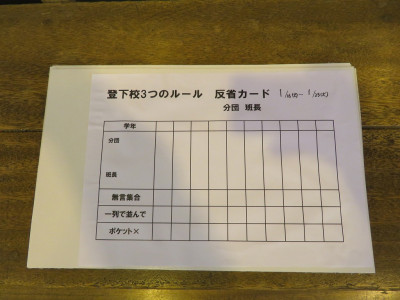 登下校3つのルール 反省カード
分団 班長
学年
分団
班長
無言集合
一列で並んで
ポケット×